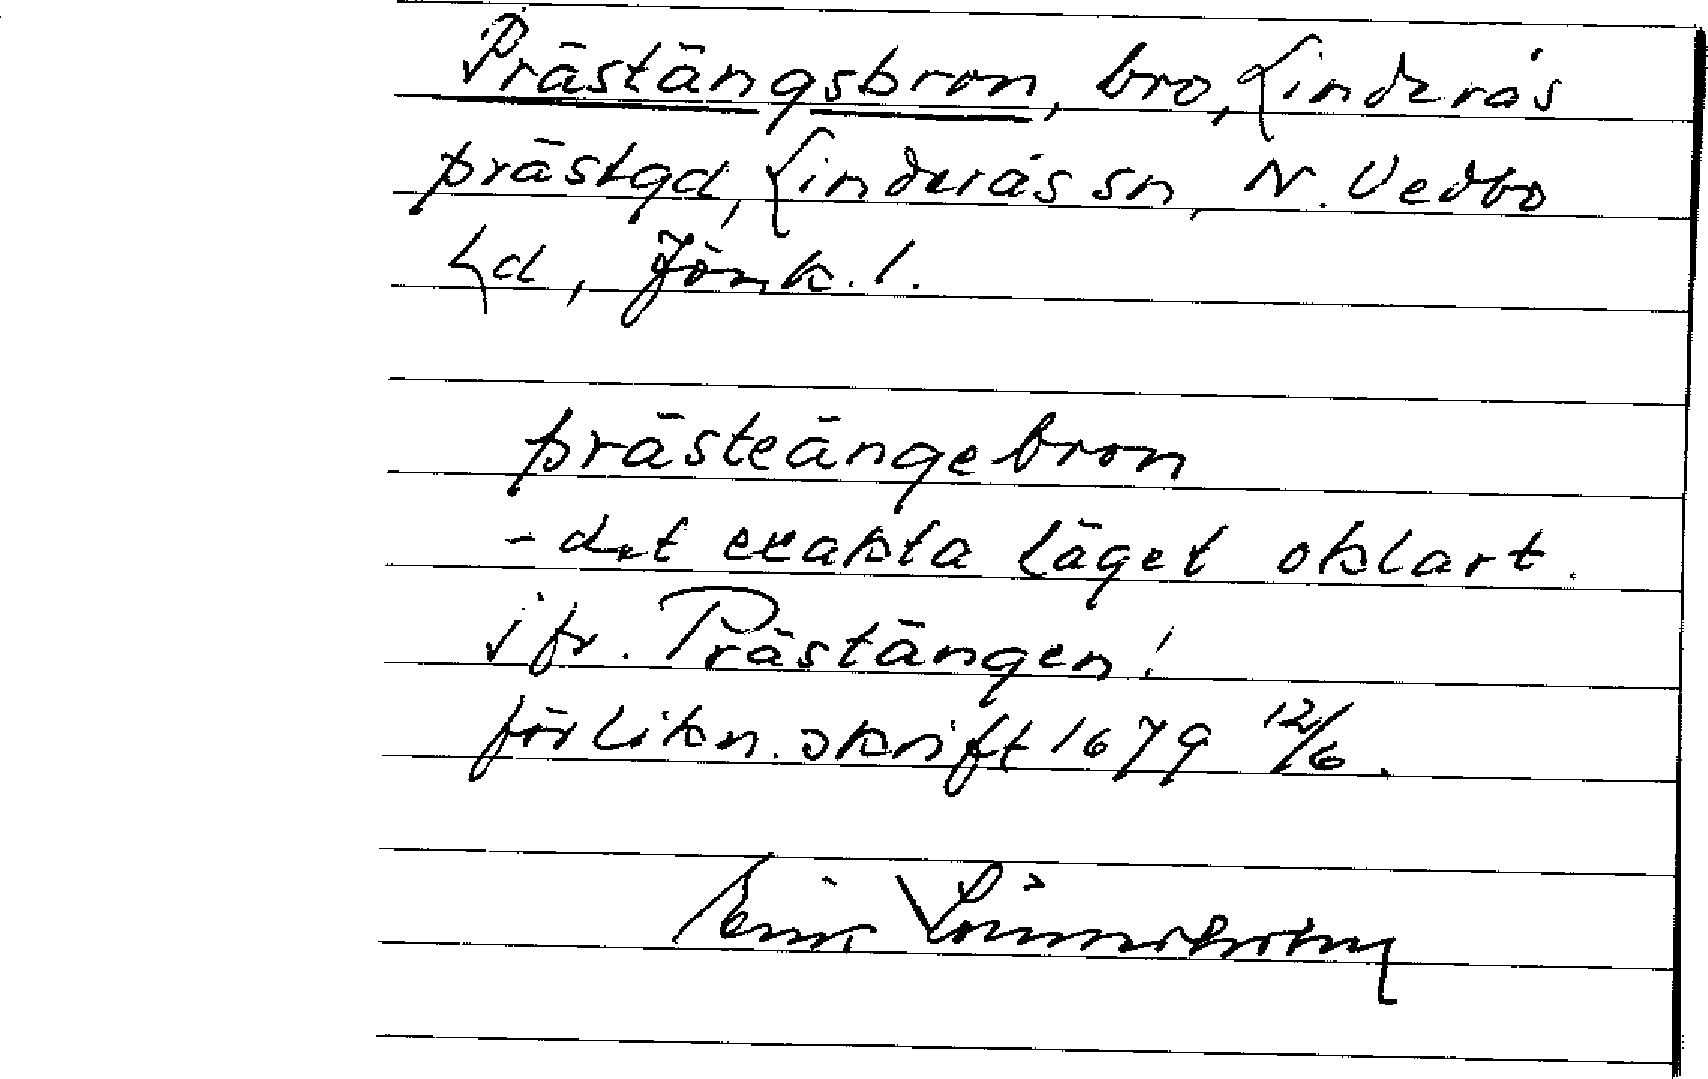 Prästängsbron, bro, Linderås
prästgd, Linderås sn, N. Vedbo
hd, Jönk. l.
prästeängebron
- det exakta läget oklart.
jfr. Prästängen!
förlikn. skrift 1679 12/6.